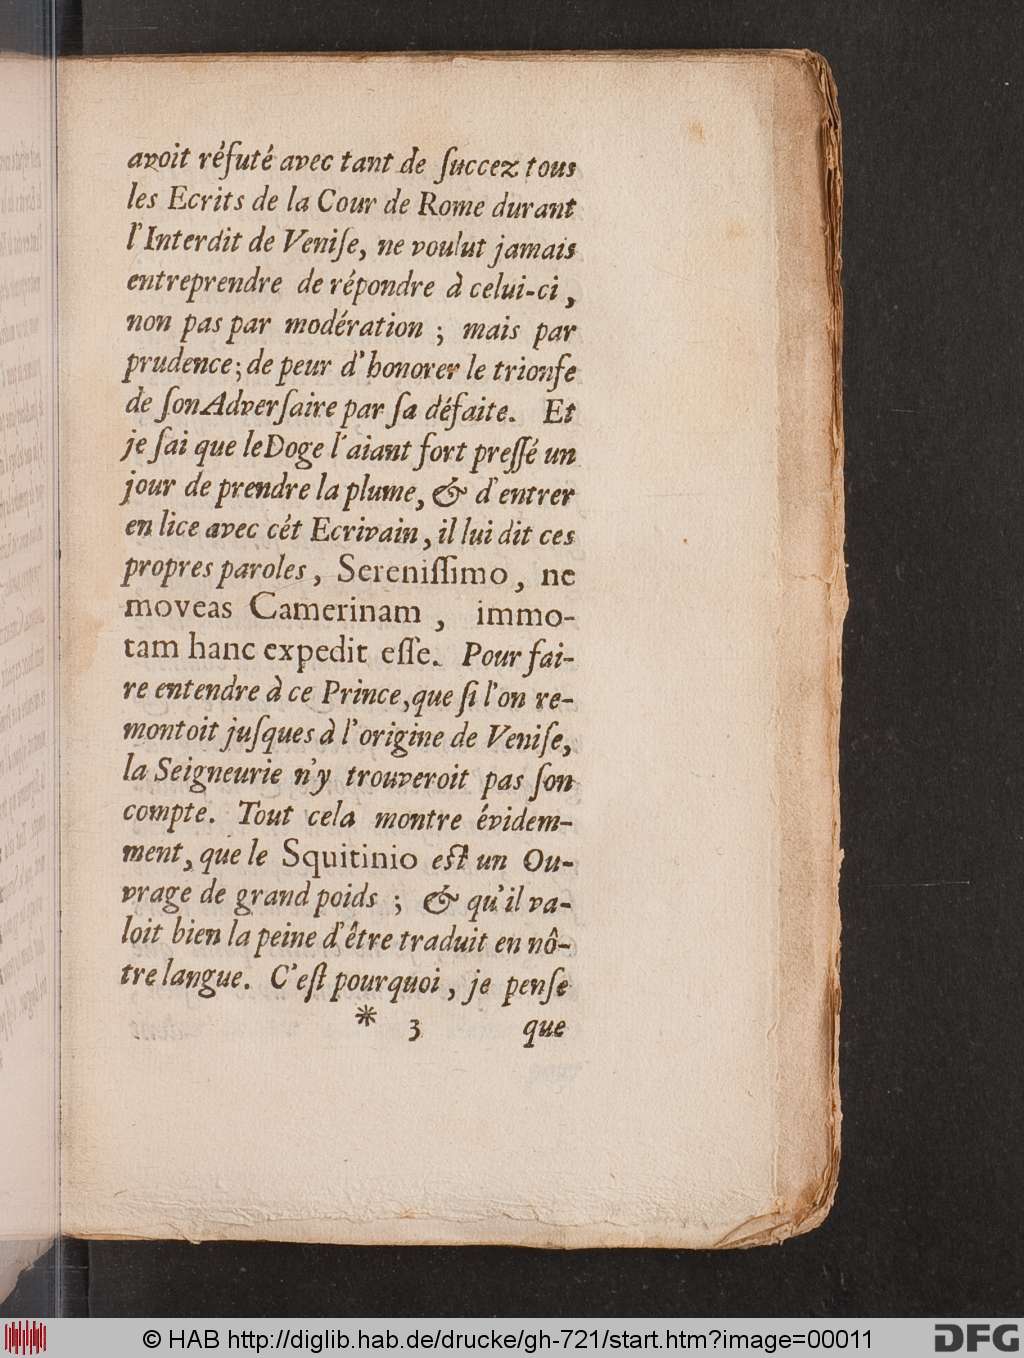 avoit réfuté avec tant de ſuccez tous
les Ecrits de la Cour de Rome durant
l'Interdit de Veniſe, ne voulut jamais
entreprendre de répondre à celui-ci,
non pas par modération ; mais par
prudence; de peur d'honorer le trionfe
de ſon Adverſaire par ſa défaite. Et
je ſai que le Doge l'aiant fort preſſé un
jour de prendre la plume, & d'entrer
en lice avec cét Ecrivain, il lui dit ces
propres paroles, Sereniſſimo, ne
moveas Camerinam, immo-
tam hanc expedit eſſe. Pour fai-
re entendre à ce Prince, que ſi l'on re-
montoit juſques à l'origine de Veniſe,
la Seigneurie n'y trouveroit pas ſon
compte. Tout cela montre évidem-
ment, que le Squitinio eſt un Ou-
vrage de grand poids ; & qu'il va-
loit bien la peine d'être traduit en nô-
tre langue. C'eſt pourquoi, je penſe
* 3 que
© HAB http://diglib.hab.de/drucke/gh-721/start.htm?image=00011
DFG